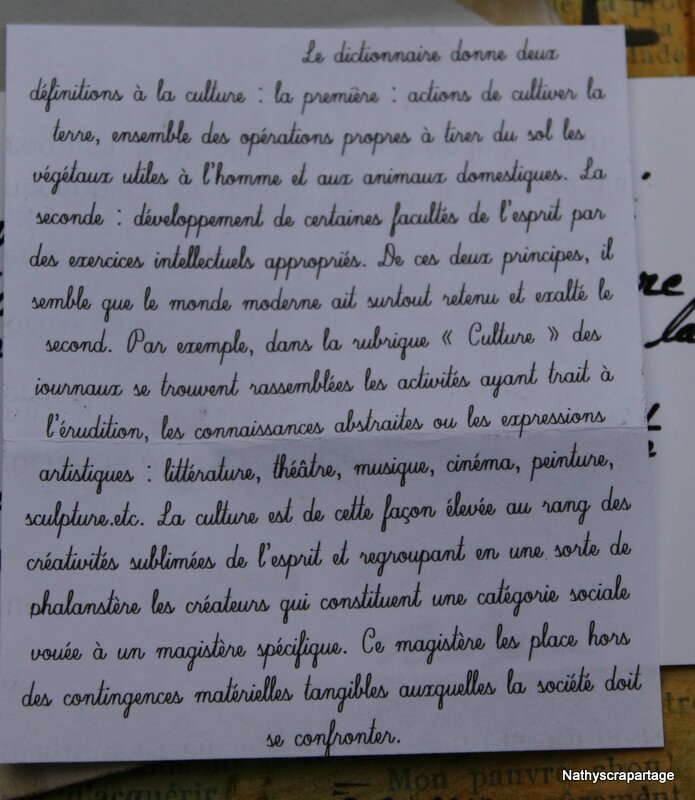 Le dictionnaire donne deux
définitions à la culture : la première : actions de cultiver la
terre, ensemble des opérations propres à tirer du sol les
végétaux utiles à l'homme et aux animaux domestiques. La
seconde : développement de certaines facultés de l'esprit par
des exercices intellectuels appropriés. De ces deux principes, il
semble que le monde moderne ait surtout retenu et exalté le
second. Par exemple, dans la rubrique « Culture » des
journaux se trouvent rassemblées les activités ayant trait à
l'érudition, les connaissances abstraites ou les expressions
artistiques : littérature, théâtre, musique, cinéma, peinture,
sculpture.etc. La culture est de cette façon élevée au rang des
créativités sublimées de l'esprit et regroupant en une sorte de
phalanstère les créateurs qui constituent une catégorie sociale
vouée à un magistère spécifique. Ce magistère les place hors
des contingences matérielles tangibles auxquelles la société doit
se confronter.
la
Mon pauvre chou!
d'acquérir
Nathyscrapartage